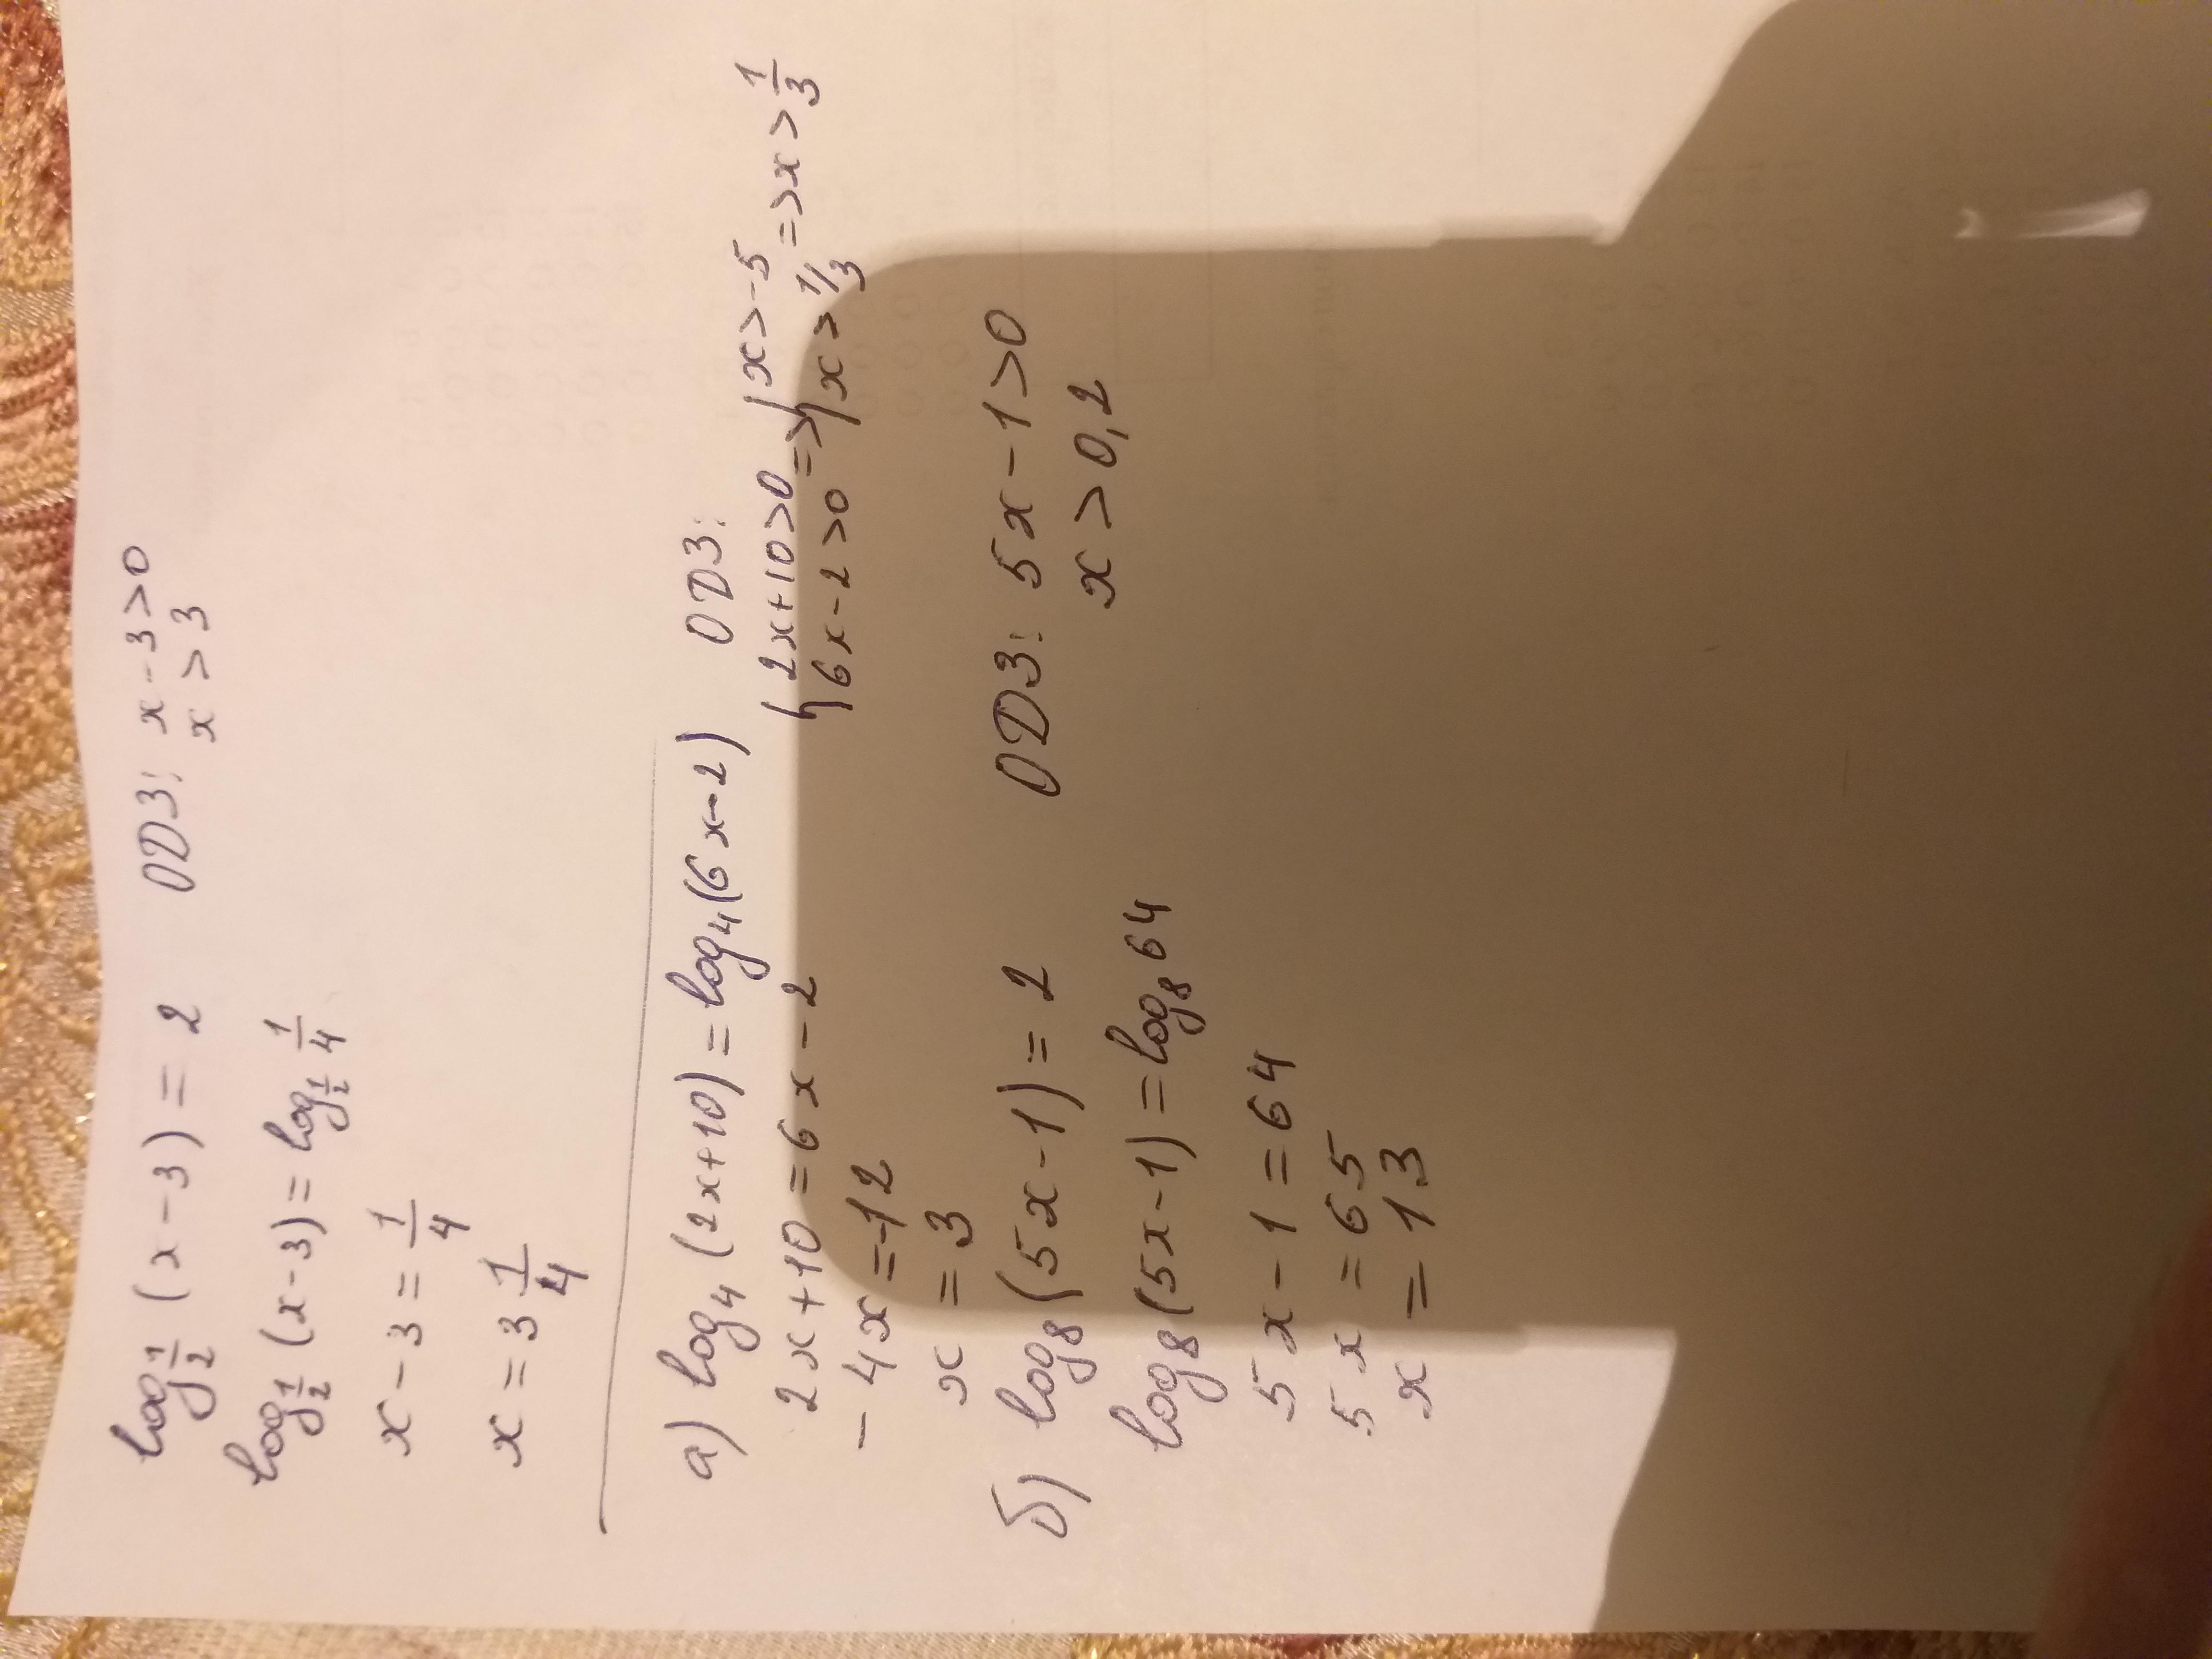 log 1/2 (x-3) = 2 ОДЗ: x-3>0
x>3
log 1/2 (x-3) = log 1/2 1/4
x-3 = 1/4
x = 3 1/4
а) log₄(2x+10) = log₄(6x-2) ОДЗ:
{2x+10>0 => {x>-5
{6x-2>0 {x>1/3 => x>1/3
2x+10=6x-2
-4x=-12
x=3
б) log₈(5x-1)=2 ОДЗ: 5x-1>0
x>0,2
log₈(5x-1)=log₈64
5x-1=64
5x=65
x=13